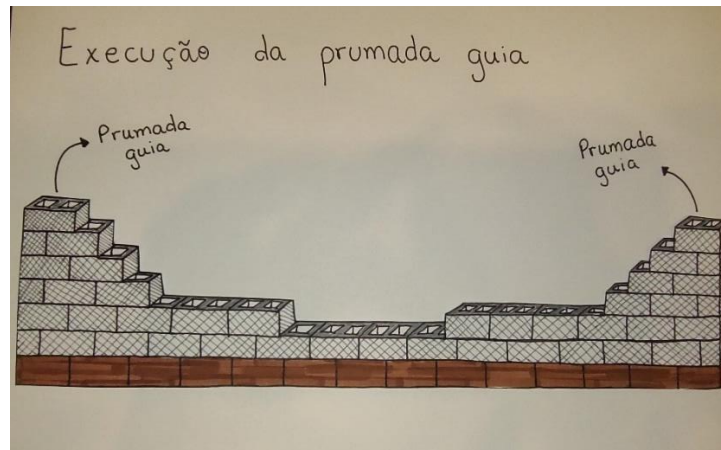 Execução da prumada guia
Prumada
guia
Prumada
guia